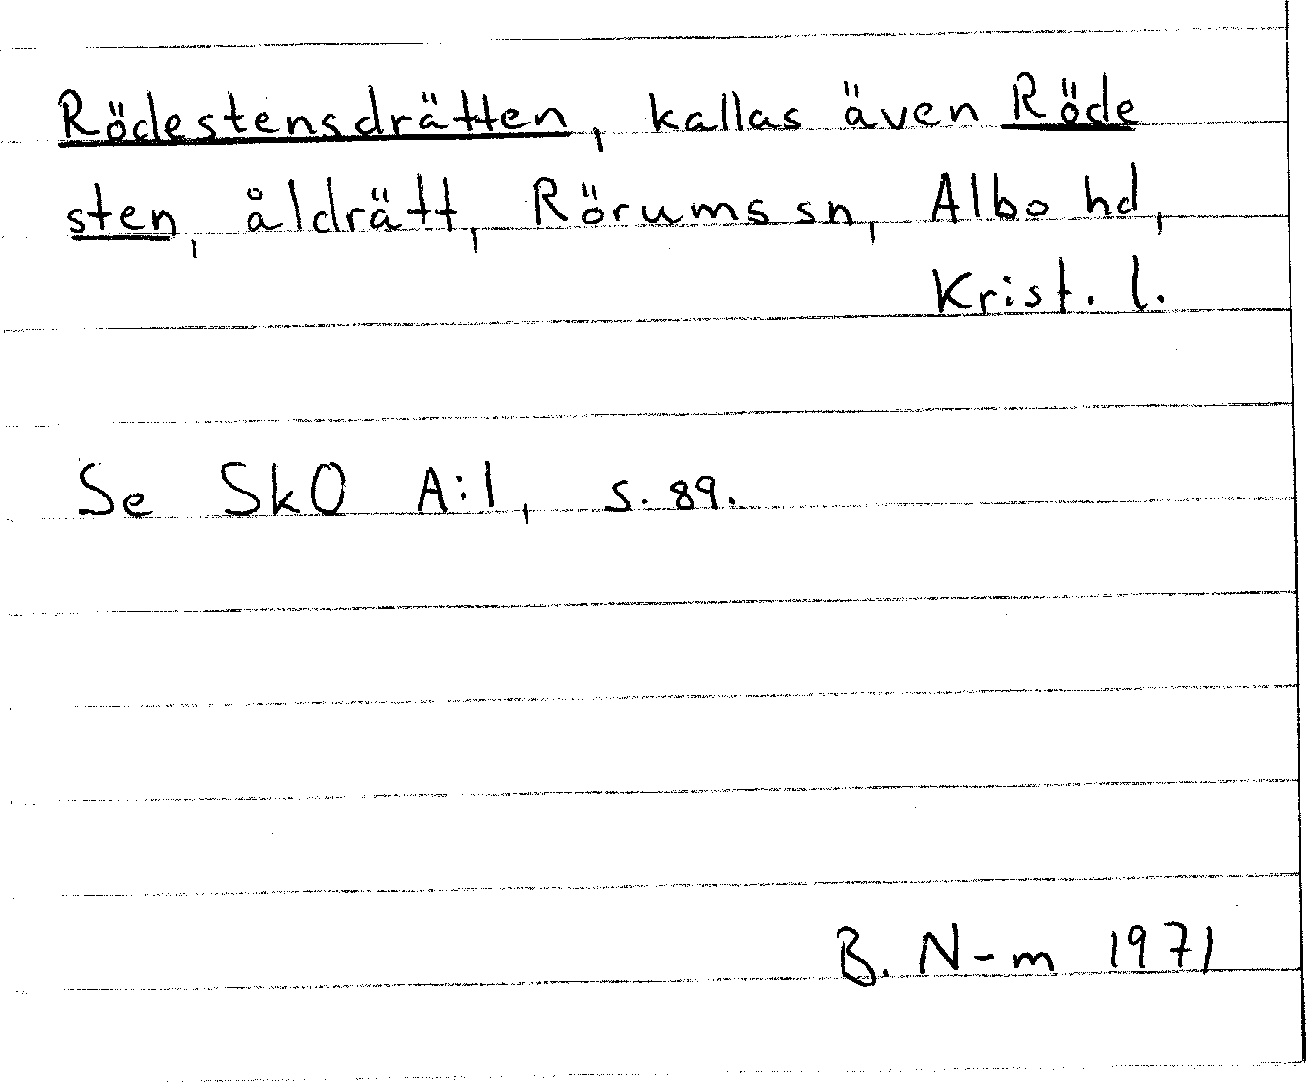 Rödestensdrätten, kallas även Röde
sten, åldrätt, Rörums sn, Albo hd,
Krist. l.
Se SkO A:1, s. 89.
B. N-m 1971